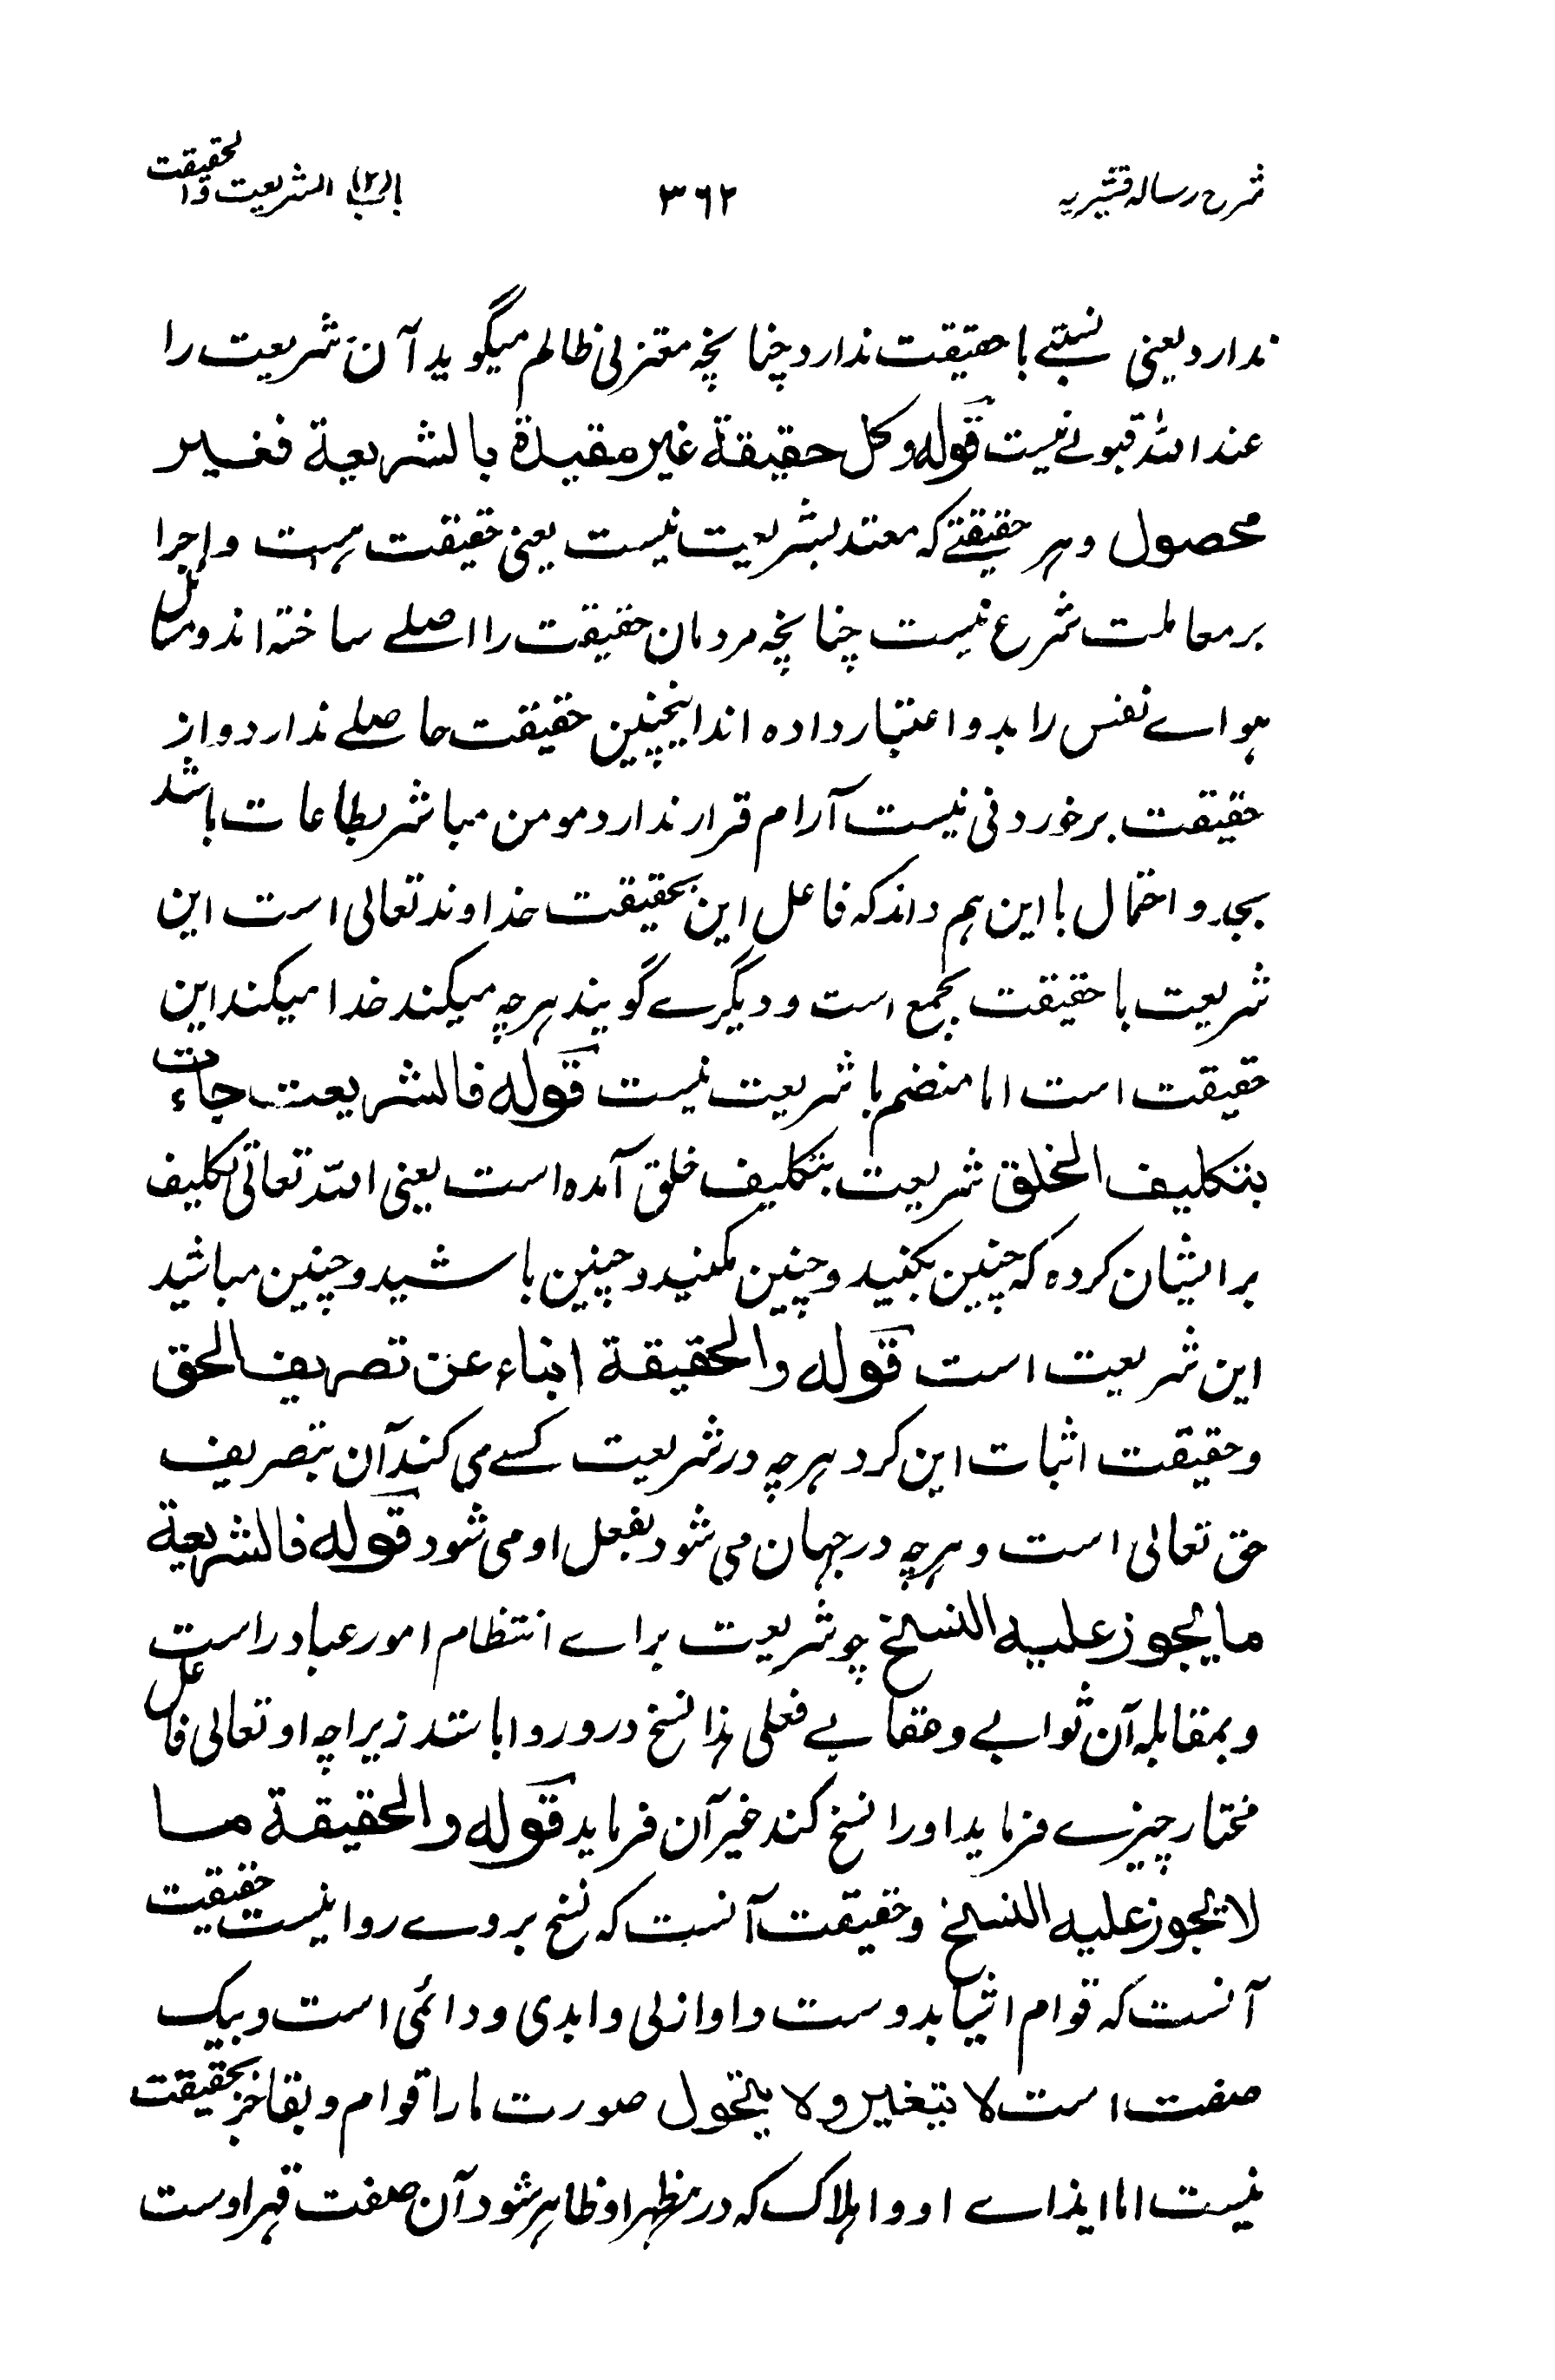 شرح رسالہ قشیریہ ۳۶۲ باب (۲) الشریعت والحقیقت
ندارد یعنی نسبتے با حقیقت ندارد چنانچہ معتزلی ظالم میگوید آن شریعت را
عند اللہ قبولے نیست قولہ وکل حقیقة غیر مقیدة بالشریعة فغیر
محصول وہر حقیقتے کہ معتد بشریعت نیست یعنی حقیقت ہست واجرا
بر معاملت شرع نیست چنانچہ مردمان حقیقت را اصلے ساختہ اند ومثل
ہواے نفس را بدو اعتبار دادہ اند اینچنین حقیقت حاصلے ندارد واز
حقیقت برخوردنی نیست آرام قرار ندارد مومن مباشر بطاعات باشد
بجد و احتمال با این ہم داند کہ فاعل این بحقیقت خداوند تعالی است این
شریعت با حقیقت بجمع است و دیگرے گویند ہرچہ میکند خدا میکند این
حقیقت است اما منضم با شریعت نیست قولہ فالشریعت جاءت
بتکلیف الخلق شریعت بتکلیف خلق آمدہ است یعنی اللہ تعالی تکلیف
بر ایشان کردہ کہ چنین بکنید وچنین مکنید وچنین باشید وچنین مباشید
این شریعت است قولہ والحقیقة انباء عن تصریف الحق
وحقیقت اثبات این کرد ہرچہ در شریعت کسے می کند آن بتصریف
حق تعالی است وہرچہ در جہان می شود بفعل او می شود قولہ فالشریعة
ما یجوز علیہ النسخ چو شریعت براے انتظام امور عباد راست
وبمقابلہ آن ثوابے وعقابے فعلی ہذا نسخ درو روا باشد زیراچہ او تعالی فاعل
مختار چیزے فرماید اورا نسخ کند غیر آن فرماید قولہ والحقیقة ما
لا یجوز علیہ النسخ وحقیقت آنست کہ نسخ بروے روا نیست حقیقت
آنست کہ قوام اشیا بدوست واو ازلی وابدی ودائمی است وبیک
صفت است لا یتغیر ولا یتحول صورت مارا قوام وبقا جز بحقیقت
نیست اما ایذاے او واہلاک کہ در مظہر او ظاہر شود آن صفت قہر اوست